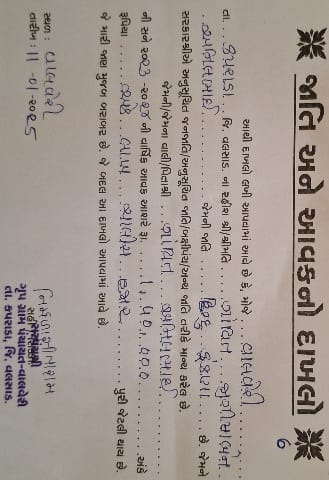 જાતિ અને આવકનો દાખલો
6
આથી દાખલો લખી આપવામાં આવે છે કે, મોજે વાલવેરી
તા. કપરાડા. જિ. વલસાડ. ના રહીશ શ્રી/શ્રીમતિ ગાંવિત
અનિલભાઈ જેમની જાતિ હિન્દુ કુંકણા છે જેમને
સરકારશ્રીએ અનુસૂચિત જનજાતિ/અનુસૂચિત જાતિ/બક્ષીપંચ/અન્ય જાતિ તરીકે માન્ય કરેલ છે.
જેમની/જેમના વાલી/પિતાશ્રી ગાંવિત અનિલભાઈ
ની સને ૨૦૨૩ -૨૦૨૪ ની વાર્ષિક આવક આશરે રૂા. ૧,૪૦,૦૦૦ અંકે
રૂપિયા એક લાખ ચાલીસ હજાર પુરી જેટલી થાય છે.
જે મારી જાણ મુજબ બરાબર છે. જે બદલ આ દાખલો આપવામાં આવે છે.
સ્થળ : વાલવેરી
તારીખ : ૧૧ -૦૧-૨૦૨૫
સરપંચશ્રી
ગ્રુપ ગ્રામ પંચાયત-વાલવેરી
તા. કપરાડા, જિ. વલસાડ.